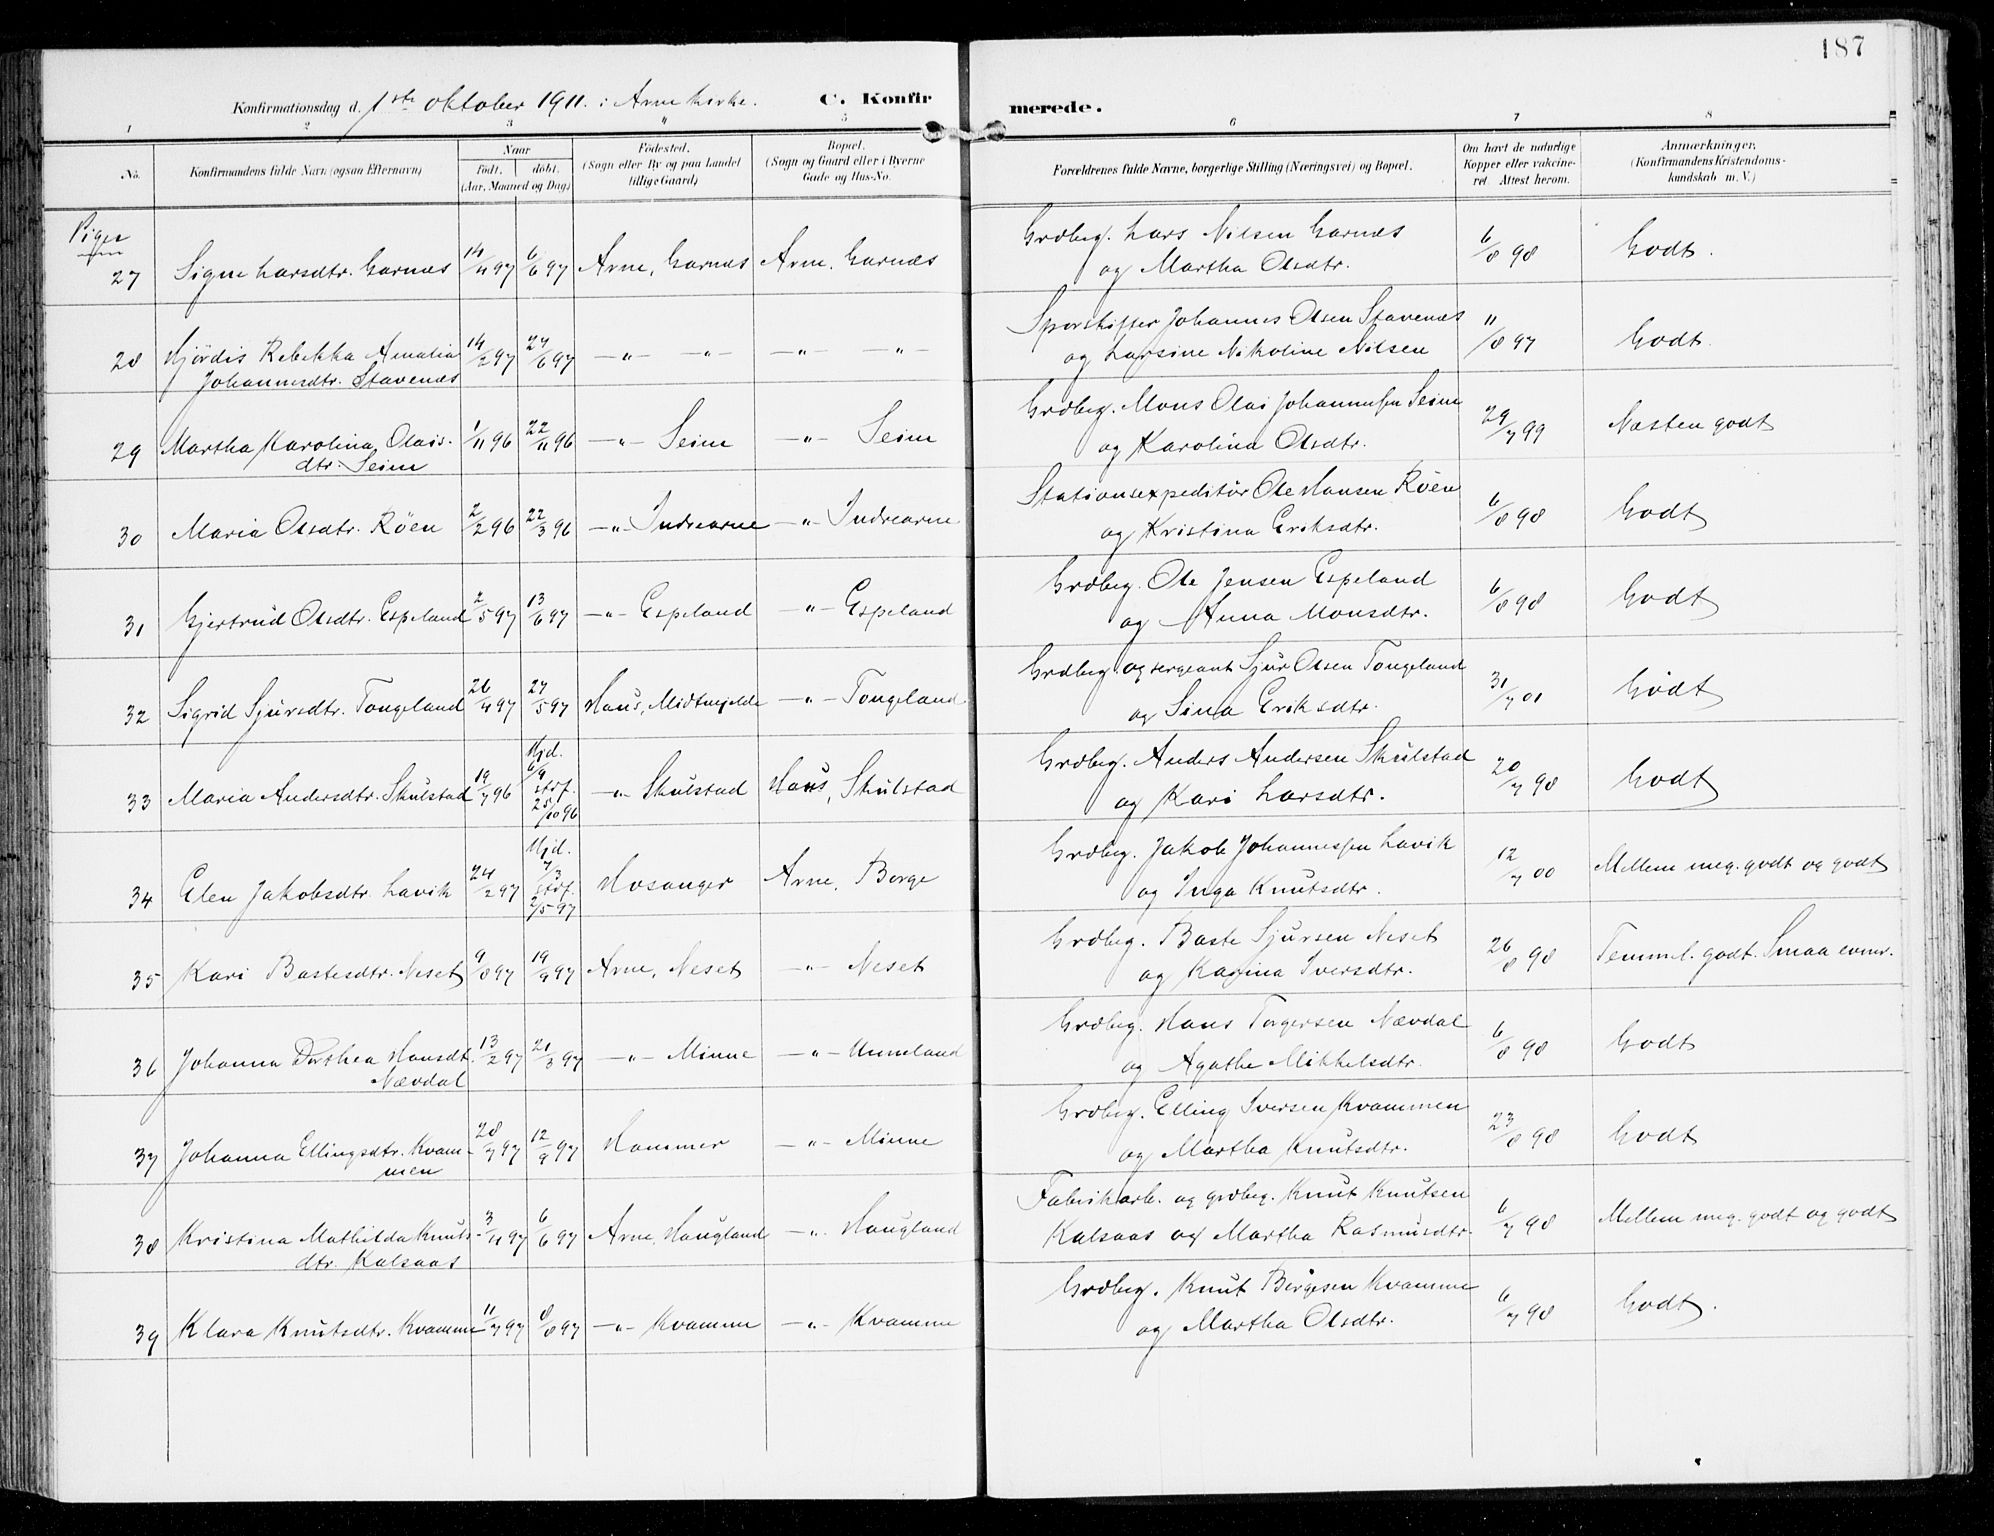 187
Konfirmationsdag d. 1ste oktober 1911. i Arne kirke. C. Konfir merede.
1 2 3 4 5 6 7 8
No. Konfirmandens fulde Navn (ogsaa Efternavn) Naar født. døbt. (Aar, Maaned og Dag) Fødested. (Sogn eller By og paa Landet tillige Gaard) Bopæl. (Sogn og Gaard eller i Byerne Gade og Hus-No. Forældrenes fulde Navne, borgerlige Stilling (Næringsvei) og Bopæl. Om havt de naturlige Kopper eller vakcineret. Attest herom. Anmærkninger. (Konfirmandens Kristendomskundskab m. V.)
Piger
27 Signe Larsdtr. Garnæs 14/4 97 6/6 97 Arne, Garnæs Arne, Garnæs Grdbrg. Lars Nilsen Garnæs
og Martha Olsdtr. 6/8 98 Godt.
28 Hjørdis Rebekka Amalia 14/2 97 27/6 97 —„— —„— —„— —„— Sporskifter Johannes Olsen Stavenæs
Johannesdtr. Stavenæs og Larsine Nikoline Nilsen 11/8 97 Godt.
29 Martha Karolina Olais- 1/11 96 22/11 96 —„— Seim —„— Seim Grdbrg. Mons Olai Johannessen Seim
dtr. Seim og Karolina Olsdtr. 29/7 99 Næsten godt
30 Maria Olsdtr. Röen 2/2 96 22/3 96 —„— Indrearne —„— Indrearne Stationsexpeditör Ole Hansen Röen
og Kristina Eriksdtr. 6/8 98 Godt
31 Gjertrud Olsdtr. Espeland 2/5 97 13/6 97 —„— Espeland —„— Espeland Grdbrg. Ole Jensen Espeland
og Anna Monsdtr. 6/8 98 Godt
32 Sigrid Sjursdtr. Tongeland 26/4 97 27/5 97 Haus, Midtmjelde —„— Tongeland Grdbrg. og sergeant Sjur Olsen Tongeland
og Sina Eriksdtr. 31/7 01 Godt
33 Maria Andersdtr. Skulstad 19/7 96 Hjd. 6/9 stdf. 25/10 96 —„— Skulstad Haus, Skulstad Grdbrg. Anders Andersen Skulstad
og Kari Larsdtr. 20/7 98 Godt
34 Elen Jakobsdtr. Lavik 24/2 97 Hjd. 7/3 stdf. 2/5 97 Hosanger Arne, Borge Grdbrg. Jakob Johannessen Lavik
og Inga Knutsdtr. 12/7 00 Mellem meg. godt og godt
35 Kari Bastesdtr. Neset 9/8 97 19/9 97 Arne, Neset —„— Neset Grdbrg. Baste Sjursen Neset
og Karina Iversdtr. 26/8 98 Temmel. godt. Smaa evner.
36 Johanna Dorthea Hansdt. 13/2 97 21/3 97 —„— Minne —„— Unneland Grdbrg. Hans Torgersen Nævdal
Nævdal og Agathe Mikkelsdtr. 6/8 98 Godt
37 Johanna Ellingsdtr. Kvam- 28/7 97 12/9 97 Hammer —„— Minne Grdbrg. Elling Iversen Kvammen
men og Martha Knutsdtr. 23/8 98 Godt
38 Kristina Mathilda Knuts- 3/4 97 6/6 97 Arne, Haugland —„— Haugland Fabrikarb. og grdbrg. Knut Knutsen
dtr. Kalsaas Kalsaas og Martha Rasmusdtr. 6/7 98 Mellem meg. godt og godt
39 Klara Knutsdtr. Kvamme 11/7 97 8/8 97 —„— Kvamme —„— Kvamme Grdbrg. Knut Børgesen Kvamme
og Martha Olsdtr. 6/7 98 Godt.